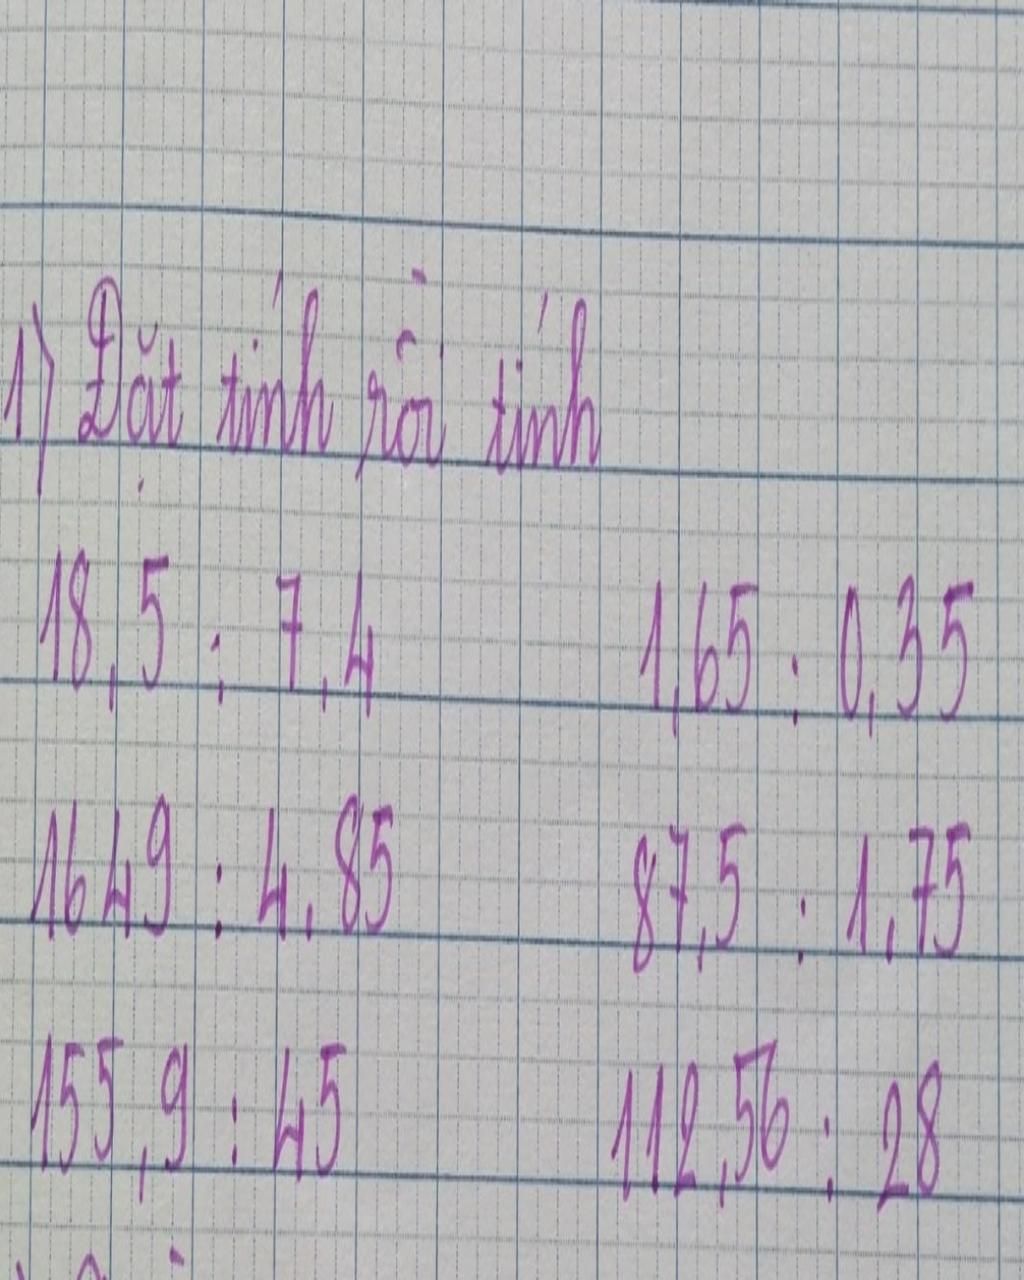 1) Đặt tính rồi tính
18,5 : 7,4 1,65 : 0,35
1649 : 4,85 87,5 : 1,75
155,9 : 45 112,56 : 28